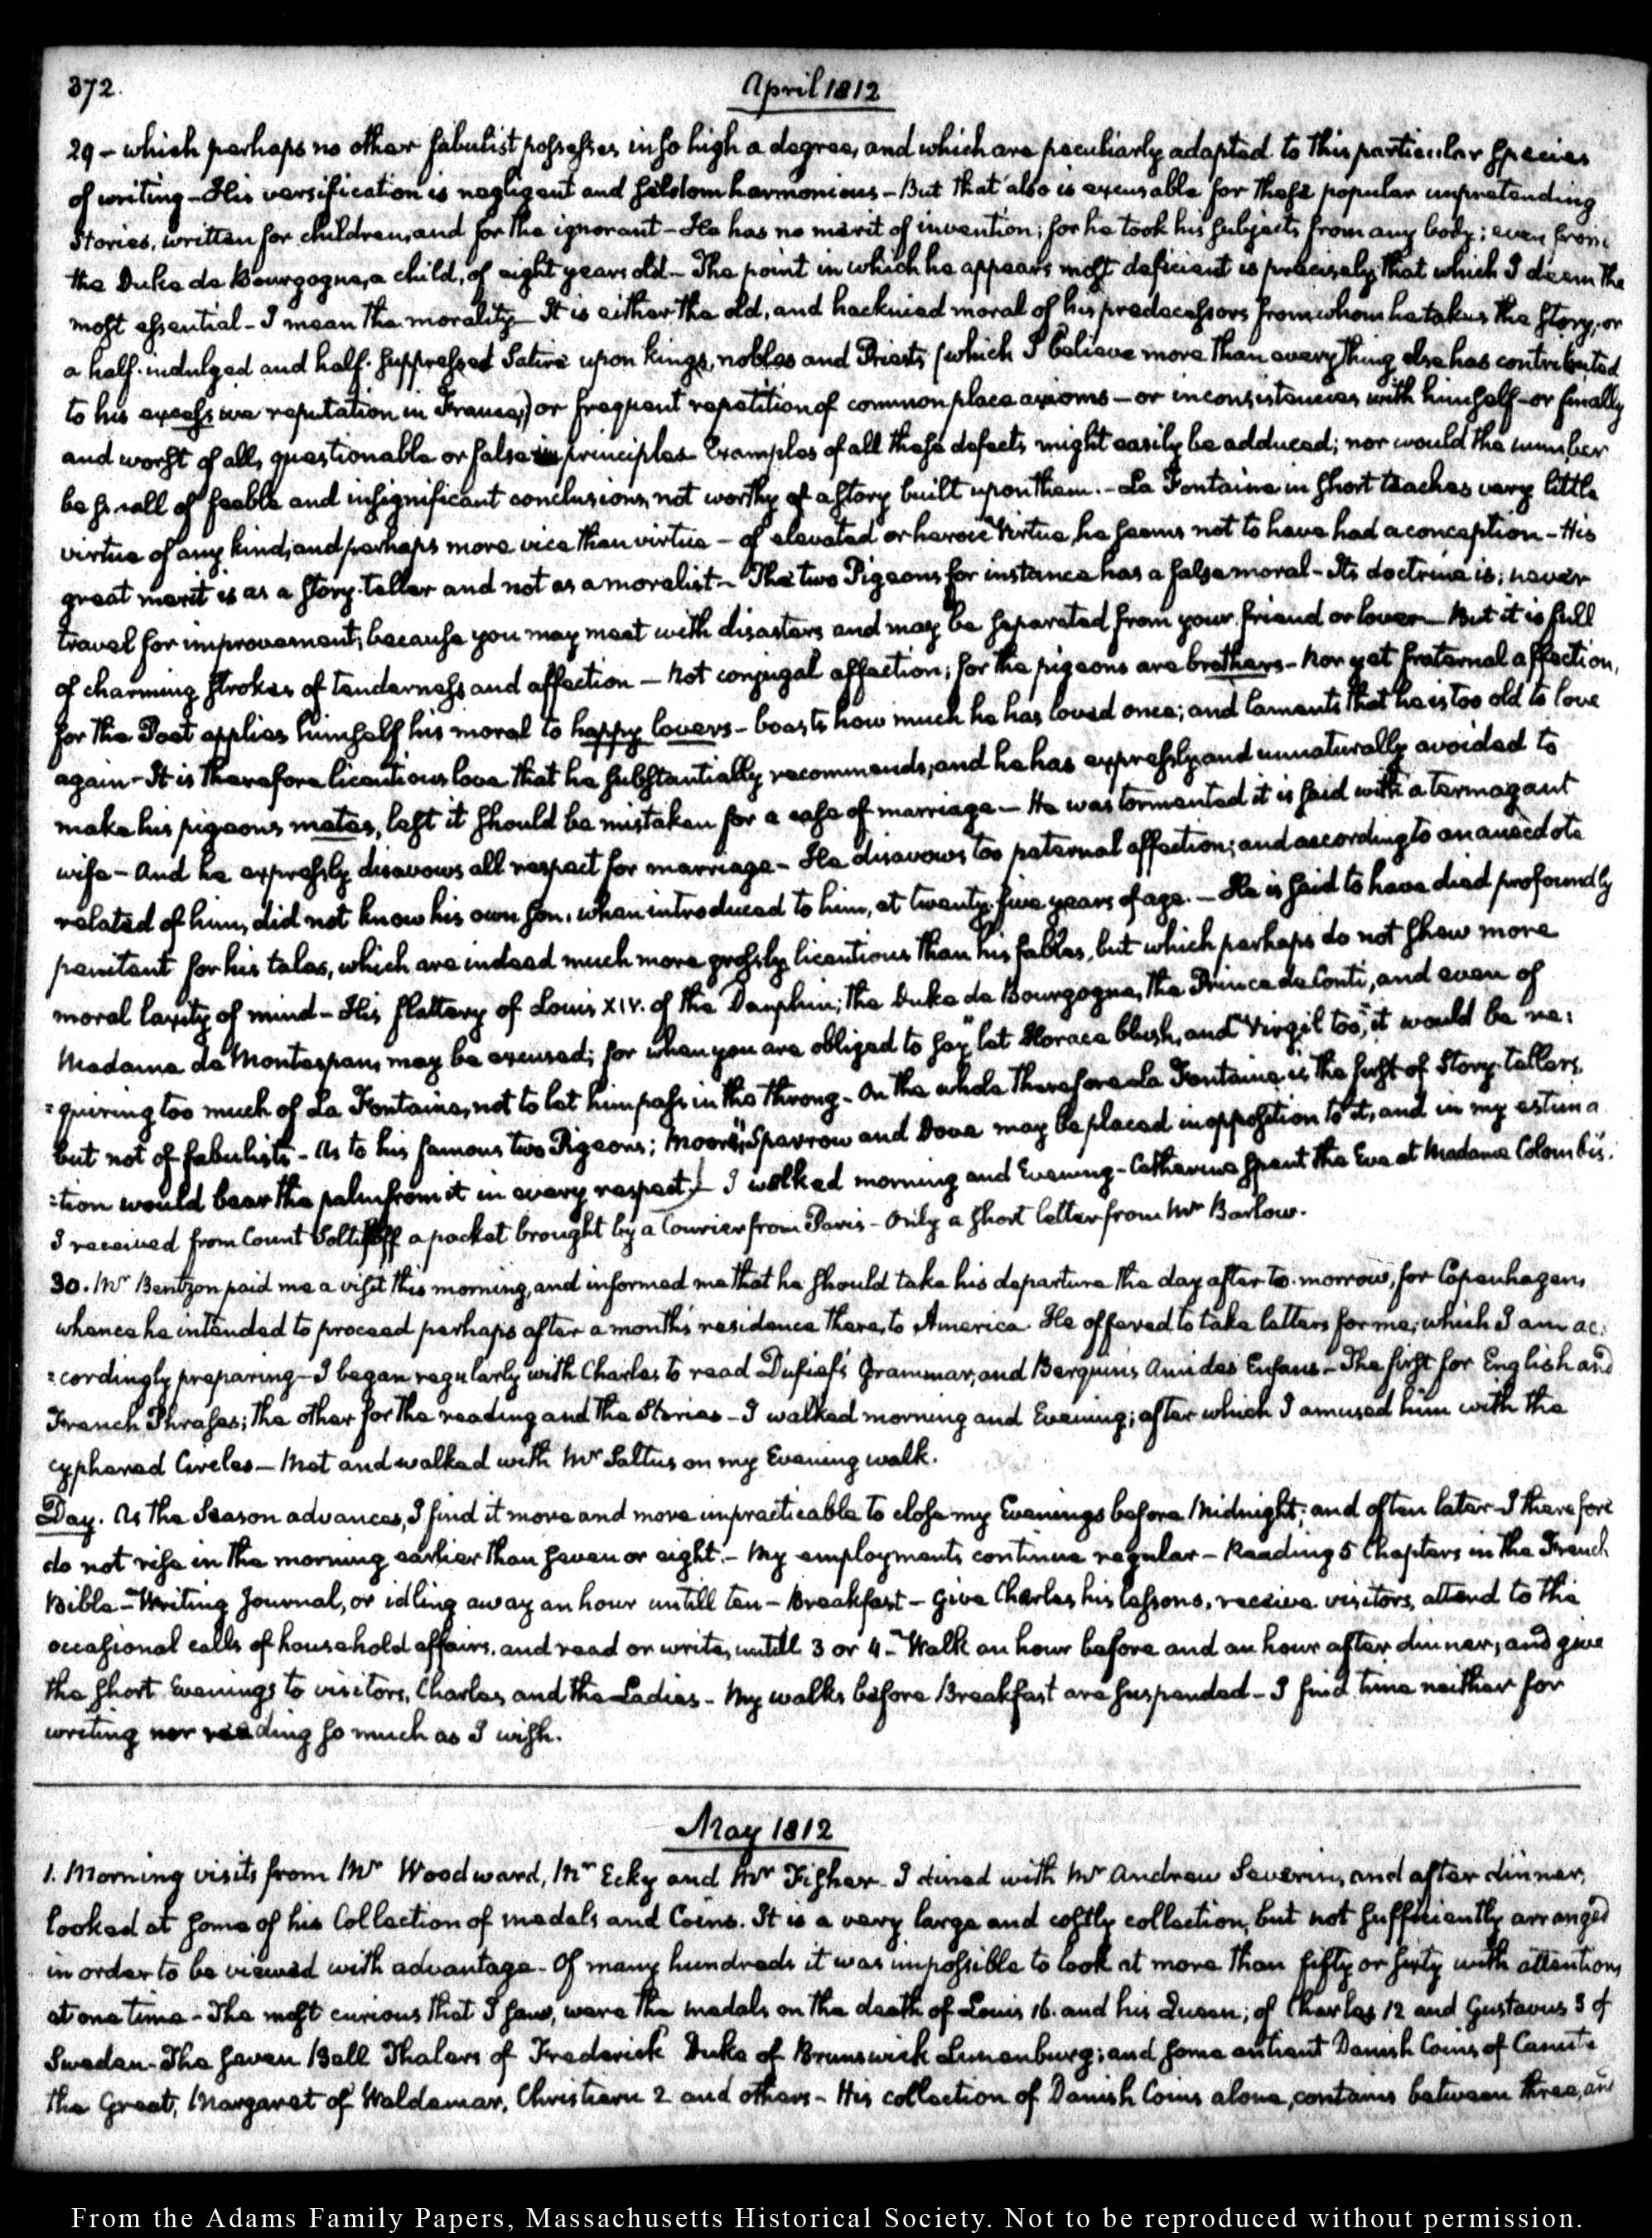 372.
April 1812
29 - which perhaps no other fabulist possesses in so high a degree, and which are peculiarly adapted to this particular species
of writing - His versification is negligent and seldom harmonious - But that also is excusable for these popular unpretending
Stories, written for children, and for the ignorant - He has no merit of invention; for he took his subjects from any body; even from
the Duke de Bourgogne, a child, of eight years old - The point in which he appears most deficient is precisely that which I deem the
most essential - I mean the morality - It is either the old, and hacknied moral of his predecessors from whom he takes the story, or
a half-indulged and half-suppressed Satire upon kings, nobles and Priests (which I believe more than every thing else has contributed
to his excessive reputation in France,) or frequent repetition of common place axioms - or inconsistencies with himself - or finally
and worst of all, questionable or false principles. Examples of all these defects might easily be adduced; nor would the number
be small of feeble and insignificant conclusions, not worthy of a story built upon them. - La Fontaine in short teaches very little
virtue of any kind, and perhaps more vice than virtue - of elevated or heroic Virtue, he seems not to have had a conception - His
great merit is as a story-teller and not as a moralist - The two Pigeons for instance has a false moral - Its doctrine is; never
travel for improvement; because you may meet with disasters and may be separated from your friend or lover - But it is full
of charming strokes of tenderness and affection - Not conjugal affection; for the pigeons are brothers - Nor yet fraternal affection,
for the Poet applies himself his moral to happy lovers - boasts how much he has loved once; and laments that he is too old to love
again - It is therefore licentious love that he substantially recommends, and he has expressly and unnaturally avoided to
make his pigeons mates, lest it should be mistaken for a case of marriage - He was tormented it is said with a termagant
wife - And he expressly disavows all respect for marriage - He disavows too paternal affection; and according to an anecdote
related of him, did not know his own son, when introduced to him, at twenty-five years of age. - He is said to have died profoundly
penitent for his tales, which are indeed much more grossly licentious than his fables, but which perhaps do not shew more
moral laxity of mind - His flattery of Louis XIV. of the Dauphin; the Duke de Bourgogne, the Prince de Conti, and even of
Madame de Montespan, may be excused; for when you are obliged to say "let Horace blush, and Virgil too," it would be re:
:quiring too much of La Fontaine, not to let him pass in the throng - On the whole therefore La Fontaine is the first of Story-tellers,
but not of fabulists - As to his famous two Pigeons; Moore's Sparrow and Dove may be placed in opposition to it, and in my estima
:tion would bear the palm from it in every respect.) - I walked morning and Evening - Catherine spent the Eve at Madame Colombi's.
I received from Count Soltikoff a packet brought by a Courier from Paris - Only a short letter from Mr Barlow.
30. Mr Bentzon paid me a visit this morning, and informed me that he should take his departure the day after to-morrow, for Copenhagen,
whence he intended to proceed perhaps after a month's residence there, to America. He offered to take letters for me; which I am ac:
:cordingly preparing - I began regularly with Charles to read Dufief's Grammar, and Berquin's Ami des Enfans - The first for English and
French Phrases; the other for the reading and the Stories - I walked morning and Evening; after which I amused him with the
cyphered Circles - Met and walked with Mr Saltus on my Evening walk.
Day. As the Season advances, I find it more and more impracticable to close my Evenings before Midnight; and often later - I therefore
do not rise in the morning earlier than seven or eight. - My employments continue regular - Reading 5 Chapters in the French
Bible - Writing Journal, or idling away an hour untill ten - Breakfast - give Charles his lessons, receive visitors, attend to the
occasional calls of household affairs, and read or write, untill 3 or 4 - Walk an hour before and an hour after dinner; and give
the short Evenings to visitors, Charles, and the Ladies - My walks before Breakfast are suspended - I find time neither for
writing nor reading so much as I wish.
May 1812
1. Morning visits from Mr Woodward, Mr Ecky and Mr Fisher - I dined with Mr Andrew Severin, and after dinner,
looked at some of his Collection of medals and Coins. It is a very large and costly collection, but not sufficiently arranged
in order to be viewed with advantage - Of many hundreds it was impossible to look at more than fifty or sixty with attention,
at one time - The most curious that I saw, were the medals on the death of Louis 16. and his Queen; of Charles 12 and Gustavus 3 of
Sweden - The seven Bell Thalers of Frederick Duke of Brunswick Lunenburg; and some antient Danish Coins of Canute
the Great, Margaret of Waldemar, Christiern 2 and others - His collection of Danish Coins alone, contains between three, and
From the Adams Family Papers, Massachusetts Historical Society. Not to be reproduced without permission.